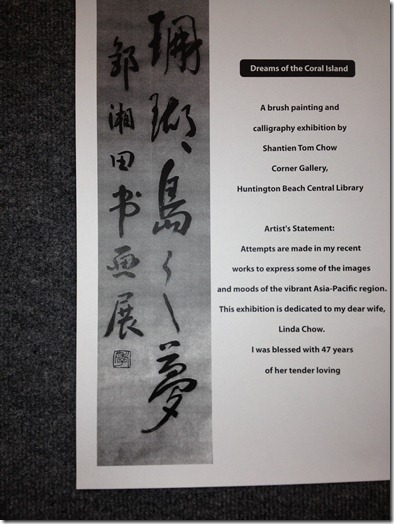 珊瑚島之夢
鄒湘田书画展
Dreams of the Coral Island
A brush painting and
calligraphy exhibition by
Shantien Tom Chow
Corner Gallery,
Huntington Beach Central Library
Artist's Statement:
Attempts are made in my recent
works to express some of the images
and moods of the vibrant Asia-Pacific region.
This exhibition is dedicated to my dear wife,
Linda Chow.
I was blessed with 47 years
of her tender loving